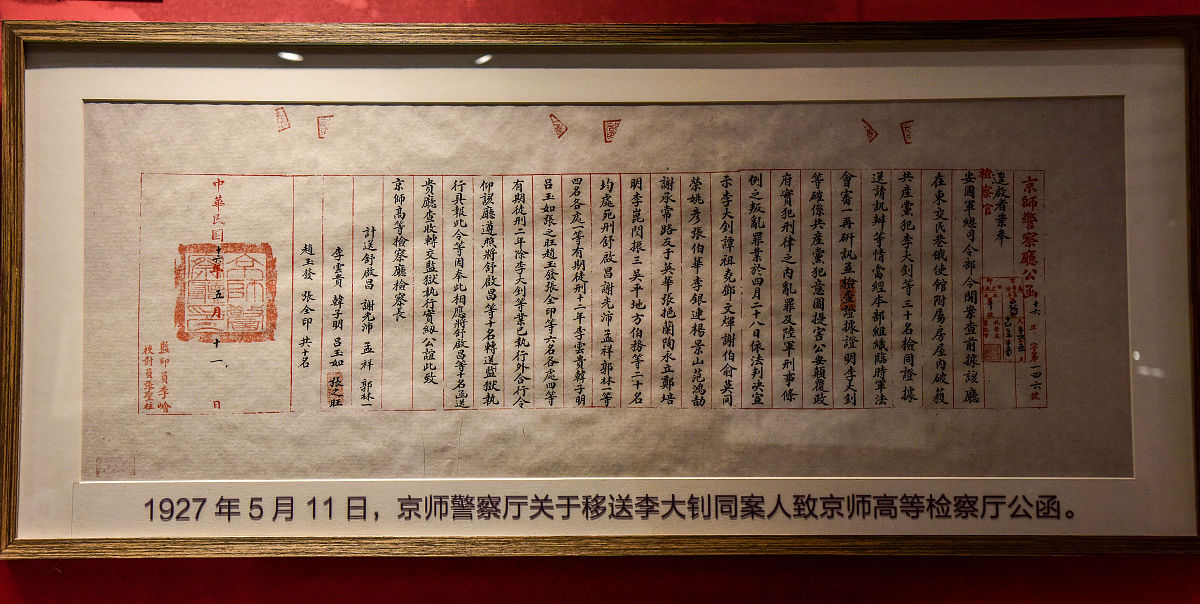 京師警察廳公函
十六年字第一四六號
檢察官
逕啟者案奉
安國軍總司令部令開案查前據該廳
在東交民巷俄使館附屬房屋內破獲
共產黨犯李大釗等三十名檢同證據
送請訊辦等情當經本部組織臨時軍法
會審一再研訊並檢查證據證明李大釗
等確係共產黨犯意圖擾害公安顛覆政
府實犯刑律之內亂罪及陸軍刑事條
例之叛亂罪業於四月二十八日依法判決宣
示李大釗譚祖堯鄧文煇謝伯俞莫同
榮姚彥張伯華李銀連楊景山范鴻劼
謝承常路友于英華張挹蘭閻永立鄭培
明李崑閃振三吳平地方伯務等二十名
均處死刑舒啟昌謝光沛孟祥郭林一等
四名各處一等有期徒刑十二年李雲貴韓子明
呂玉如張之旺趙玉發張全印等六名各處四等
有期徒刑二年除李大釗等業已執行外合行令
仰該廳遵照將舒啟昌等十名轉送監獄執
行具報此令等因奉此相應將舒啟昌等十名函送
貴廳查收轉交監獄執行實紉公誼此致
京師高等檢察廳檢察長
計送舒啟昌 謝光沛 孟祥 郭林一
李雲貴 韓子明 呂玉如 張之旺
趙玉發 張全印 共十名
中華民國十六年五月十一日
監印員李峻
校對員張聖桂
1927年5月11日，京师警察厅关于移送李大钊同案人致京师高等检察厅公函。